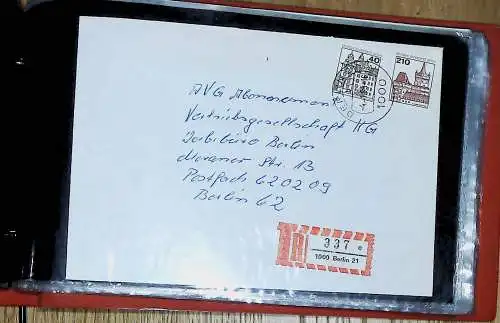 40
210
1000
BERLIN
AVG Abonnement
Vertriebsgesellschaft KG
Berlin
Meraner Str. 13
Postfach 620209
Berlin 62
R
337 e
1000 Berlin 21